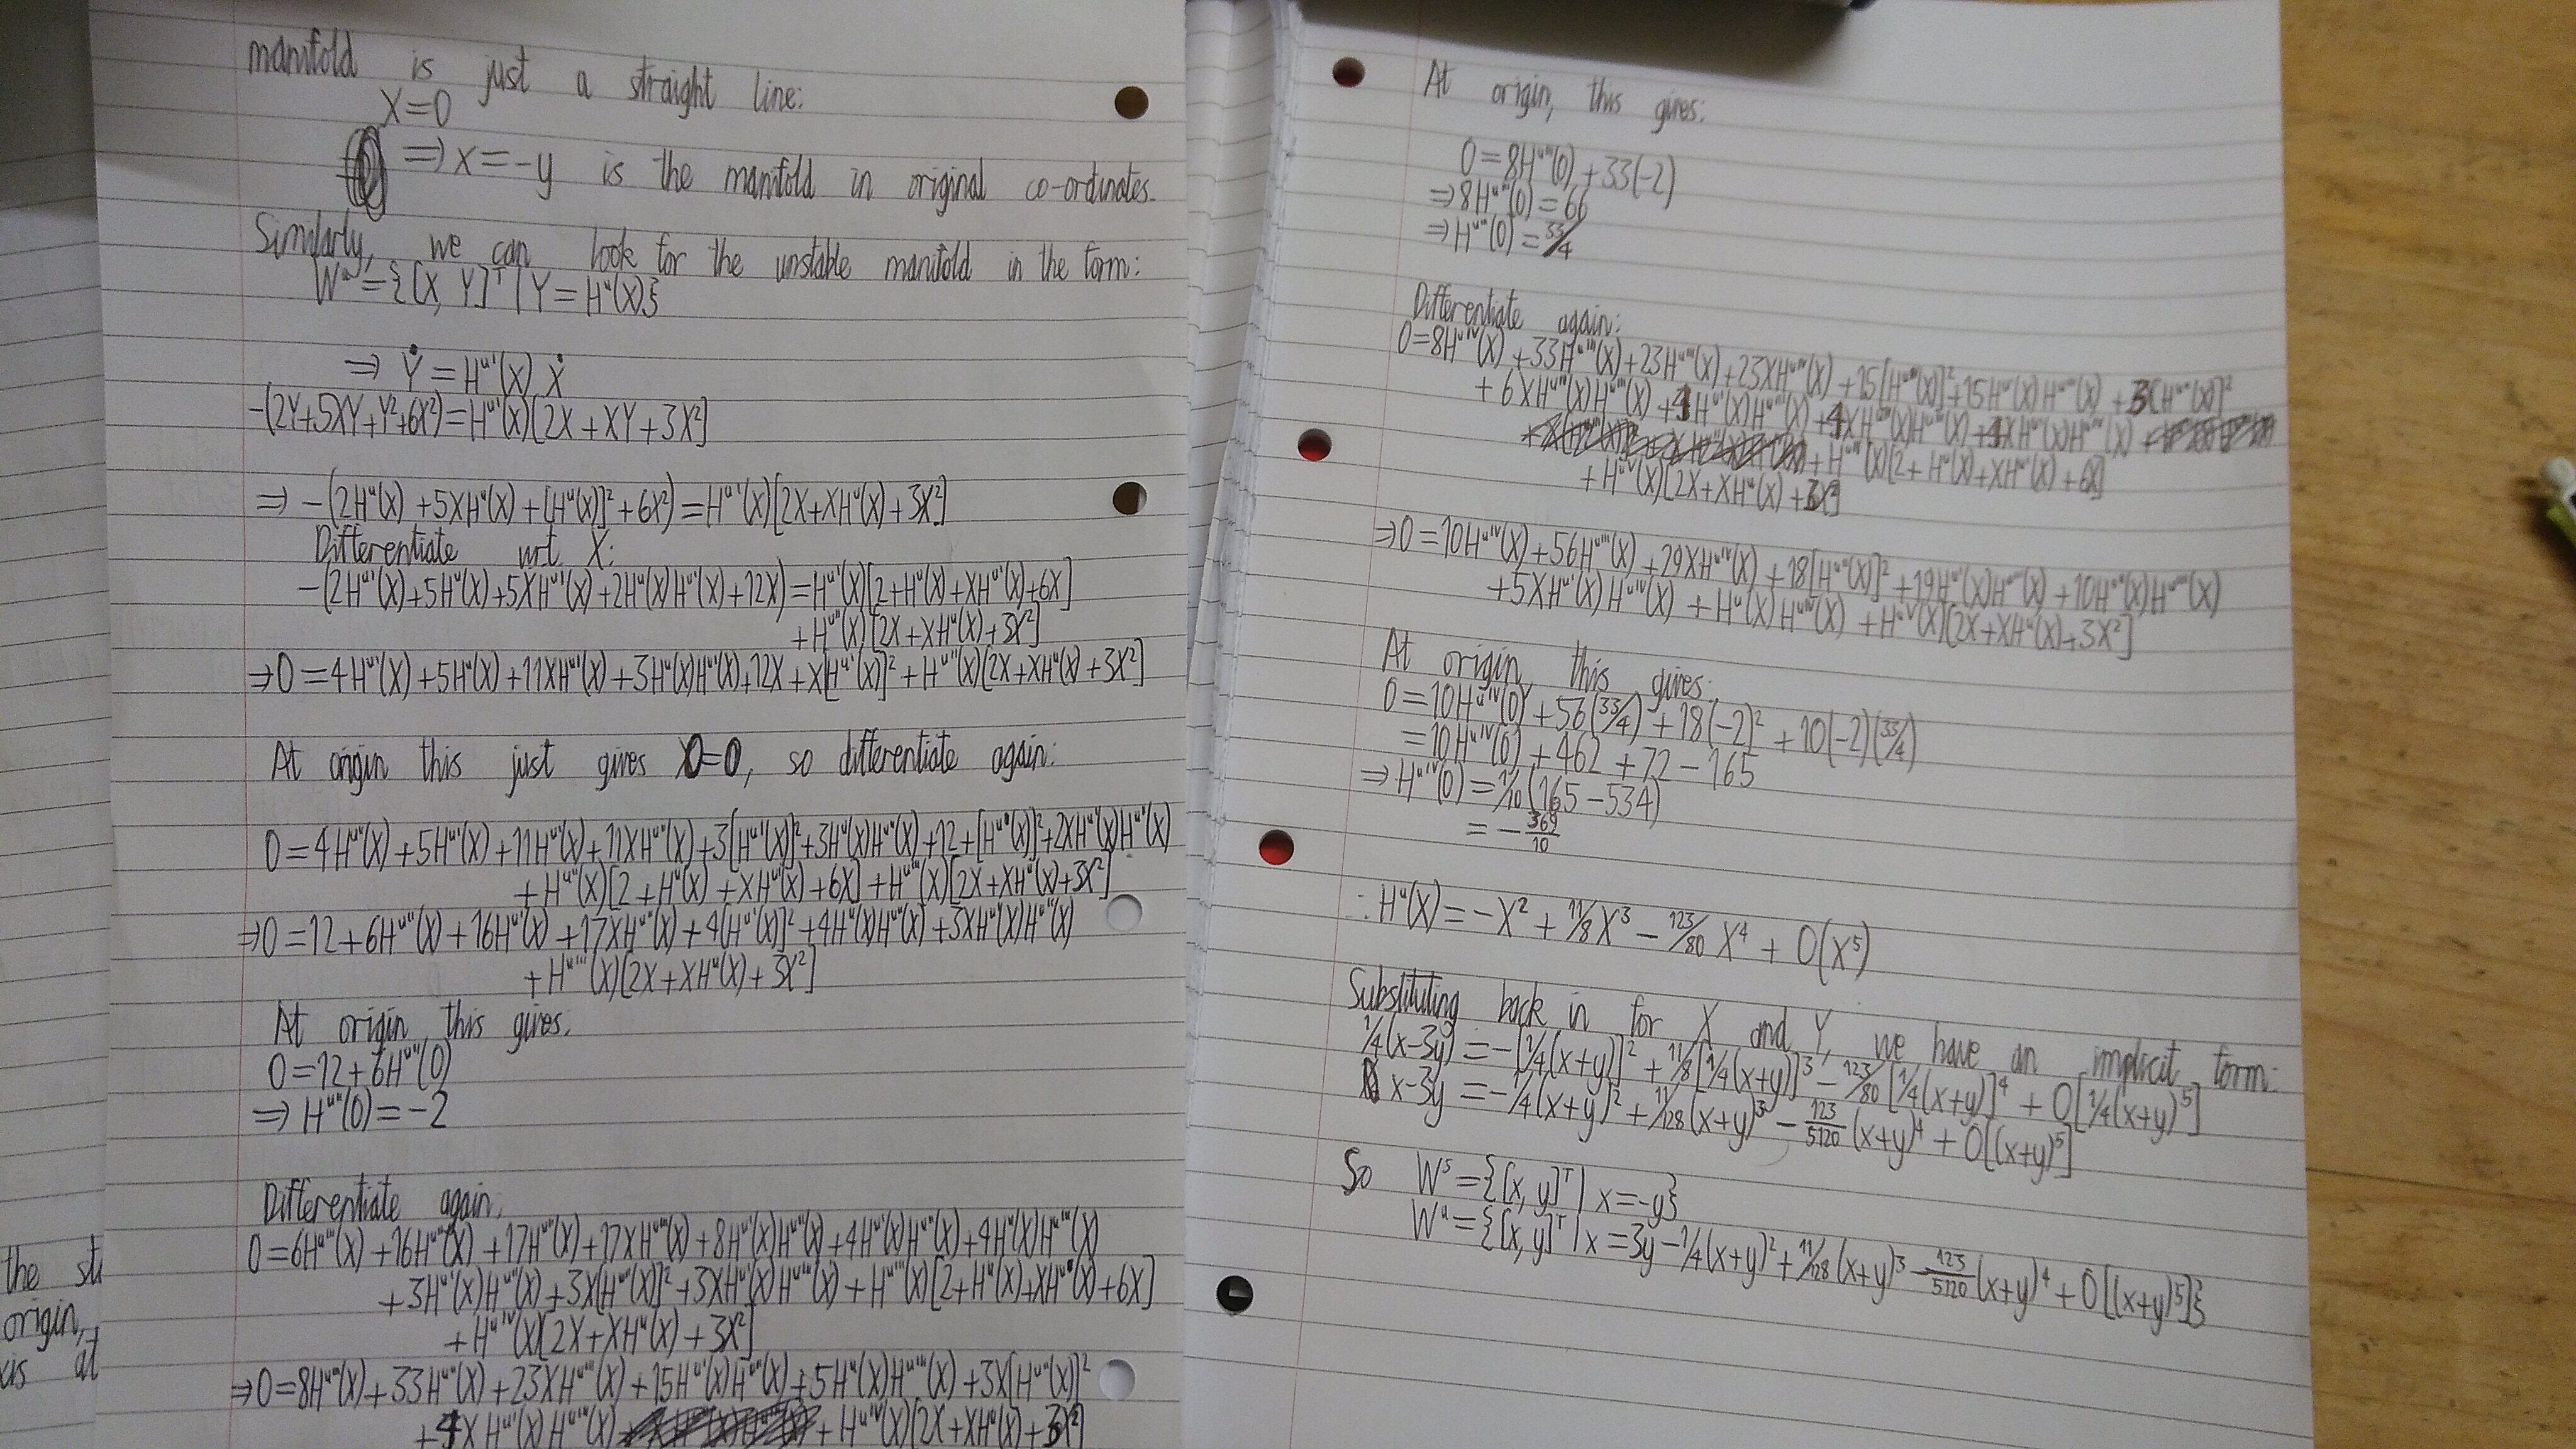 manifold is just a straight line:
X=0
⇒ x=-y is the manifold in original co-ordinates.
Similarly, we can look for the unstable manifold in the form:
Wᵘ={[X, Y]ᵀ | Y=Hᵘ(X)}
⇒ Ẏ=Hᵘ'(X) Ẋ
-(2Y+5XY+Y²+6X²)=Hᵘ'(X)[2X+XY+3X²]
⇒ -(2Hᵘ(X)+5XHᵘ(X)+[Hᵘ(X)]²+6X²)=Hᵘ'(X)[2X+XHᵘ(X)+3X²]
Differentiate wrt X:
-(2Hᵘ'(X)+5Hᵘ(X)+5XHᵘ'(X)+2Hᵘ(X)Hᵘ'(X)+12X)=Hᵘ'(X)[2+Hᵘ(X)+XHᵘ'(X)+6X]
+Hᵘ''(X)[2X+XHᵘ(X)+3X²]
⇒0=4Hᵘ'(X)+5Hᵘ(X)+11XHᵘ'(X)+3Hᵘ(X)Hᵘ'(X)+12X+X[Hᵘ'(X)]²+Hᵘ''(X)[2X+XHᵘ(X)+3X²]
At origin this just gives 0=0, so differentiate again:
0=4Hᵘ''(X)+5Hᵘ'(X)+11Hᵘ'(X)+11XHᵘ''(X)+3[Hᵘ'(X)]²+3Hᵘ(X)Hᵘ''(X)+12+[Hᵘ'(X)]²+2XHᵘ'(X)Hᵘ''(X)
+Hᵘ''(X)[2+Hᵘ(X)+XHᵘ'(X)+6X]+Hᵘ'''(X)[2X+XHᵘ(X)+3X²]
⇒0=12+6Hᵘ''(X)+16Hᵘ'(X)+17XHᵘ''(X)+4[Hᵘ'(X)]²+4Hᵘ(X)Hᵘ''(X)+3XHᵘ'(X)Hᵘ''(X)
+Hᵘ'''(X)[2X+XHᵘ(X)+3X²]
At origin this gives,
0=12+6Hᵘ''(0)
⇒ Hᵘ''(0)=-2
Differentiate again,
0=6Hᵘ'''(X)+16Hᵘ''(X)+17Hᵘ''(X)+17XHᵘ'''(X)+8Hᵘ'(X)Hᵘ''(X)+4Hᵘ'(X)Hᵘ''(X)+4Hᵘ(X)Hᵘ'''(X)
+3Hᵘ'(X)Hᵘ''(X)+3X[Hᵘ''(X)]²+3XHᵘ'(X)Hᵘ'''(X)+Hᵘ'''(X)[2+Hᵘ(X)+XHᵘ'(X)+6X]
+Hᵘ''''(X)[2X+XHᵘ(X)+3X²]
⇒0=8Hᵘ'''(X)+33Hᵘ''(X)+23XHᵘ'''(X)+15Hᵘ'(X)Hᵘ''(X)+5Hᵘ(X)Hᵘ'''(X)+3X[Hᵘ''(X)]²
+4XHᵘ'(X)Hᵘ'''(X)+Hᵘ''''(X)[2X+XHᵘ(X)+3X²]
the st
origin,
xis at
At origin, this gives:
0=8Hᵘ'''(0)+33(-2)
⇒8Hᵘ'''(0)=66
⇒Hᵘ'''(0)=33/4
Differentiate again:
0=8Hᵘ''''(X)+33Hᵘ'''(X)+23Hᵘ'''(X)+23XHᵘ''''(X)+15[Hᵘ''(X)]²+15Hᵘ'(X)Hᵘ'''(X)+3[Hᵘ''(X)]²
+6XHᵘ''(X)Hᵘ'''(X)+4Hᵘ'(X)Hᵘ'''(X)+4XHᵘ''(X)Hᵘ'''(X)+4XHᵘ'(X)Hᵘ''''(X)
+Hᵘ''''(X)[2+Hᵘ(X)+XHᵘ'(X)+6X]
+Hᵘⱽ(X)[2X+XHᵘ(X)+3X²]
⇒0=10Hᵘ''''(X)+56Hᵘ'''(X)+29XHᵘ''''(X)+18[Hᵘ''(X)]²+19Hᵘ'(X)Hᵘ'''(X)+10Hᵘ''(X)Hᵘ'''(X)
+5XHᵘ'(X)Hᵘ''''(X)+Hᵘ(X)Hᵘ''''(X)+Hᵘⱽ(X)[2X+XHᵘ(X)+3X²]
At origin this gives:
0=10Hᵘ''''(0)+56(33/4)+18(-2)²+10(-2)(33/4)
=10Hᵘ''''(0)+462+72-165
⇒Hᵘ''''(0)=1/10(165-534)
=-369/10
∴Hᵘ(X)=-X²+11/8X³-123/80X⁴+O(X⁵)
Substituting back in for X and Y, we have an implicit form:
1/4(x-3y)=-[1/4(x+y)]²+11/8[1/4(x+y)]³-123/80[1/4(x+y)]⁴+O[1/4(x+y)⁵]
x-3y=-1/4(x+y)²+11/128(x+y)³-123/5120(x+y)⁴+O[(x+y)⁵]
So Wˢ={[x, y]ᵀ | x=-y}
Wᵘ={[x, y]ᵀ | x=3y-1/4(x+y)²+11/128(x+y)³-123/5120(x+y)⁴+O[(x+y)⁵]}